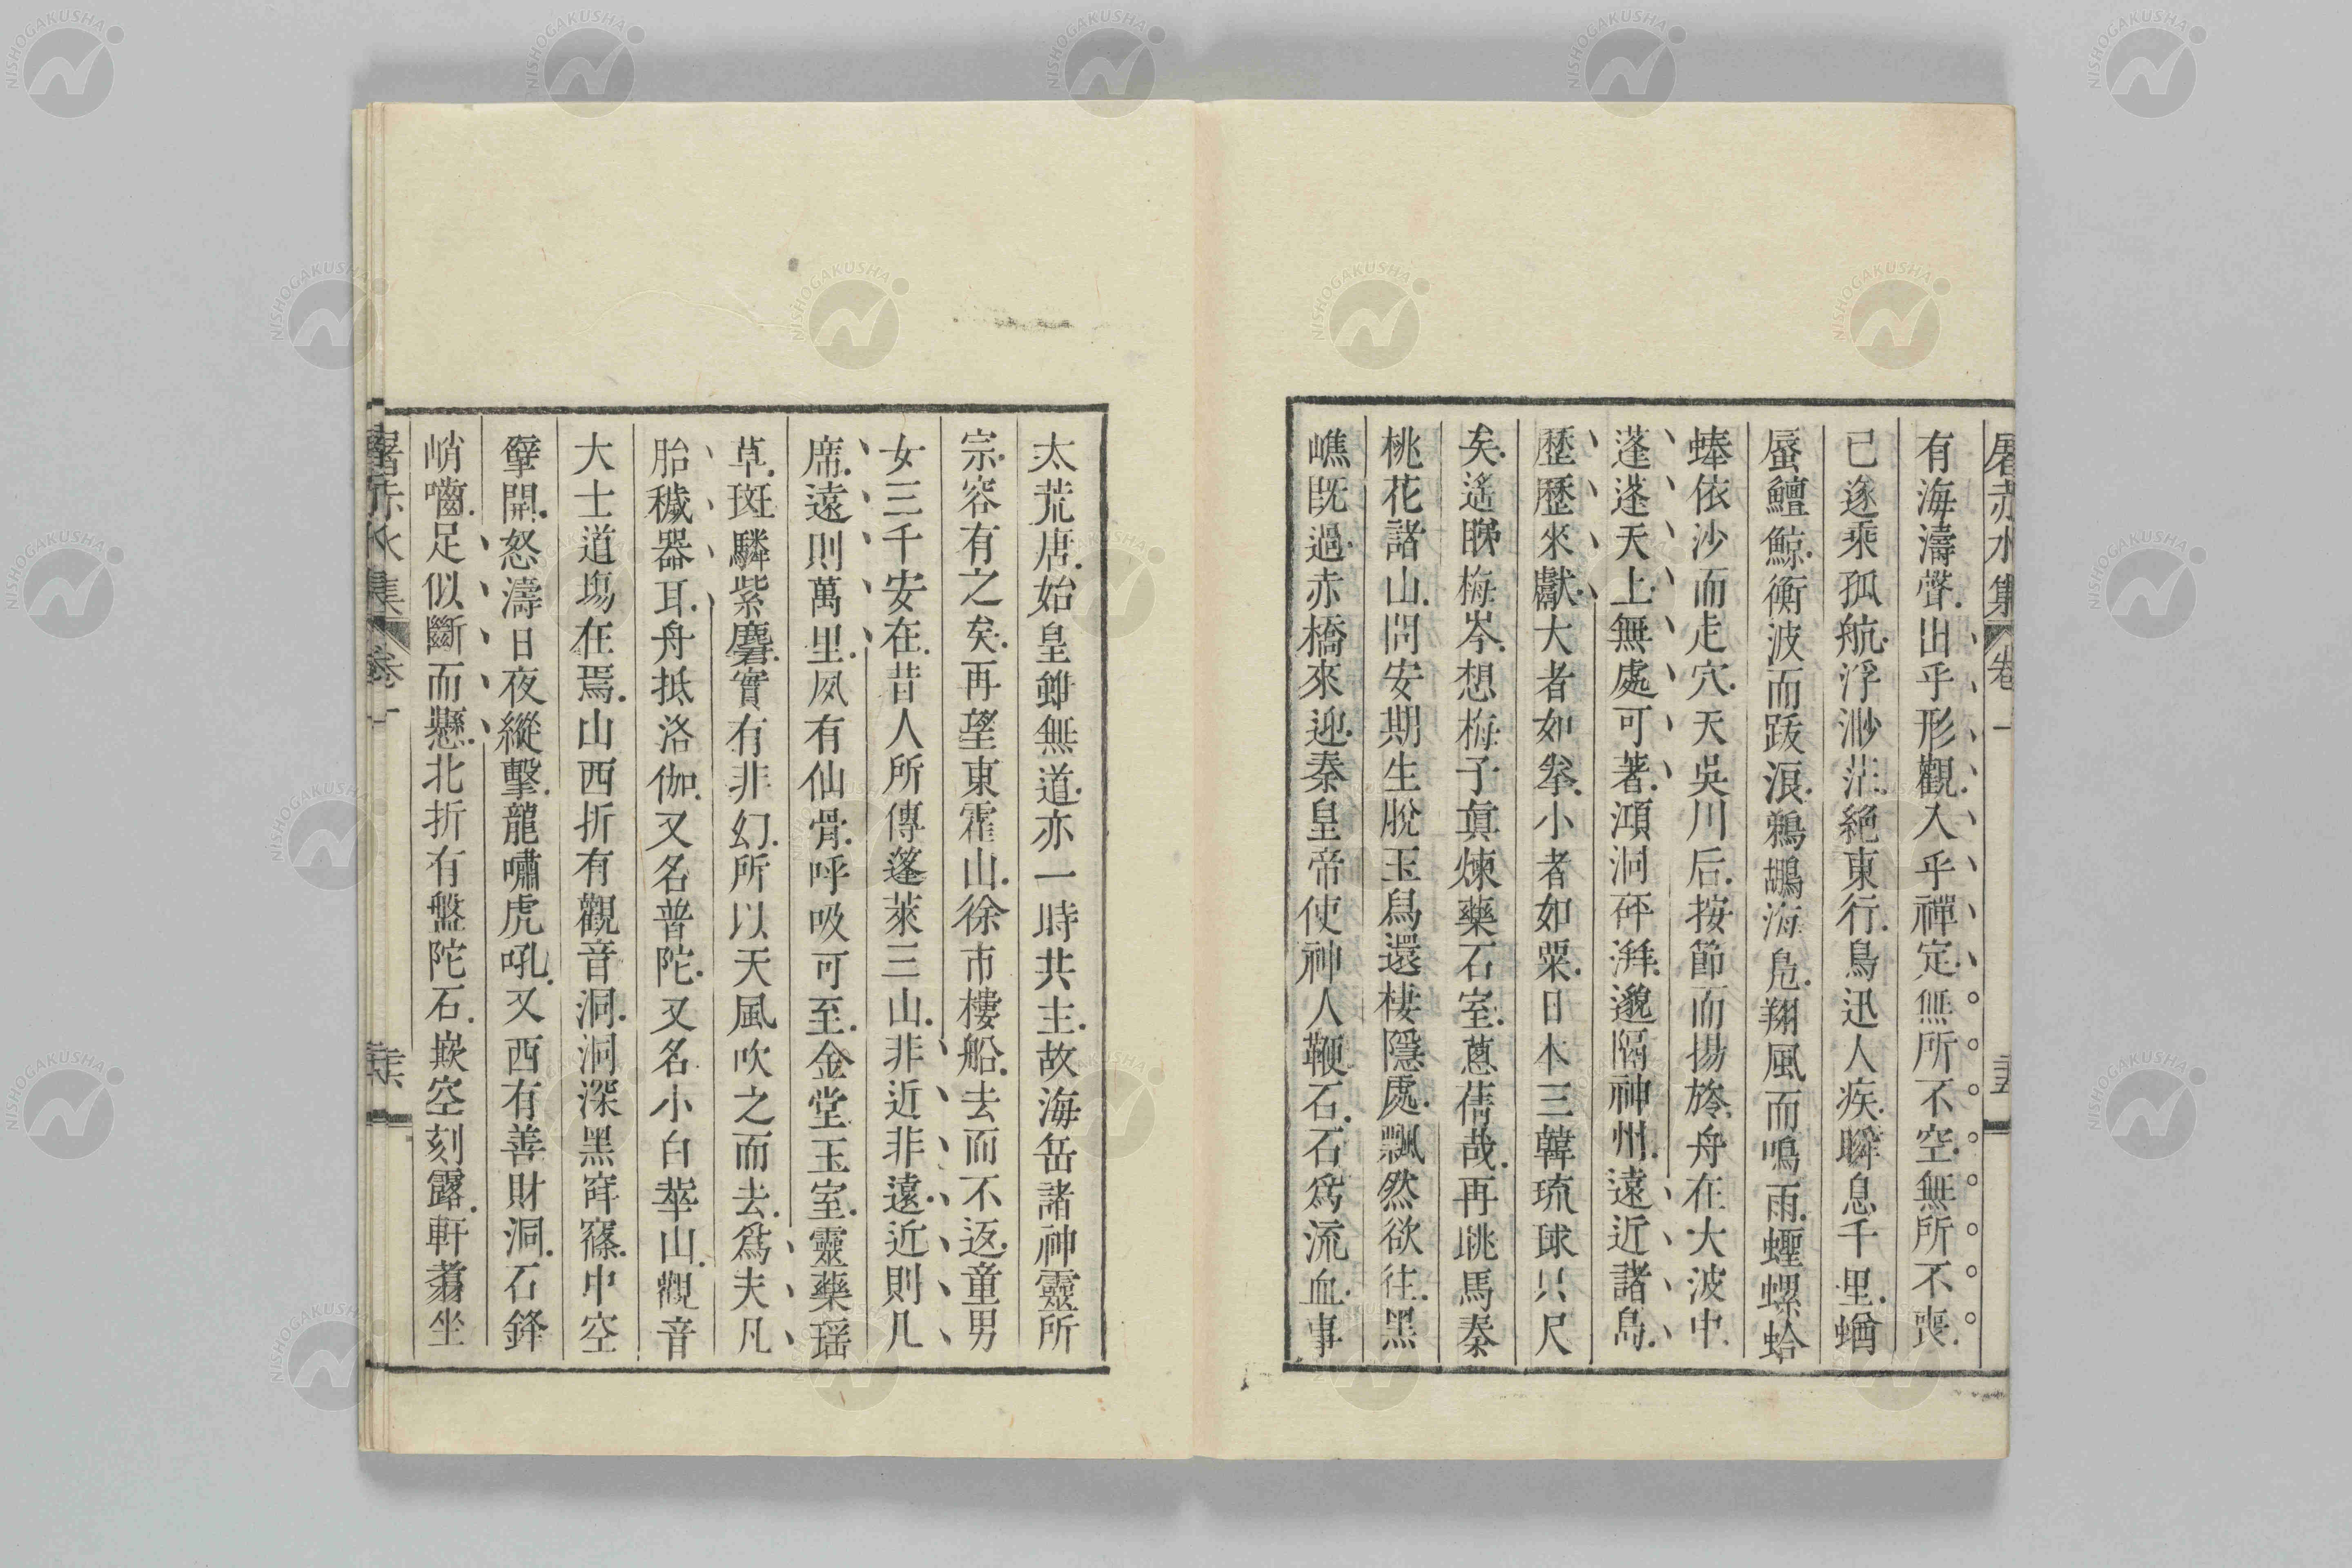 屠赤水集 卷一 三五
有海濤聲出乎形觀入乎禪定無所不空無所不喪
已遂乘孤航浮渺茫絕東行鳥迅人疾瞬息千里蝤
蜃鱣鯨衝波而跋浪鵜鶘海鳧翔風而鳴雨蟶螺蛤
蜯依沙而走穴天吳川后按節而揚旍舟在大波中
蓬蓬天上無處可著澒洞砰湃邈隔神州遠近諸島
歷歷來獻大者如拳小者如粟日本三韓琉球只尺
矣遙睇梅岑想梅子眞煉藥石室蔥蒨哉再眺馬秦
桃花諸山問安期生脫玉舄還棲隱處飄然欲往黑
嶕旣過赤橋來迎秦皇帝使神人鞭石石爲流血事
太荒唐始皇雖無道亦一時共主故海岳諸神靈所
宗容有之矣再望東霍山徐市樓船去而不返童男
女三千安在昔人所傳蓬萊三山非近非遠近則几
席遠則萬里夙有仙骨呼吸可至金堂玉室靈藥瑶
草斑麟紫麏實有非幻所以天風吹之而去爲夫凡
胎穢器耳舟抵洛伽又名普陀又名小白華山觀音
大士道塲在焉山西折有觀音洞洞深黑窅窱中空
擘開怒濤日夜縱擊龍嘯虎吼又西有善財洞石鋒
峭嚙足似斷而懸北折有盤陀石嵌空刻露軒翥坐
屠赤水集 卷一 三六
NISHOGAKUSHA